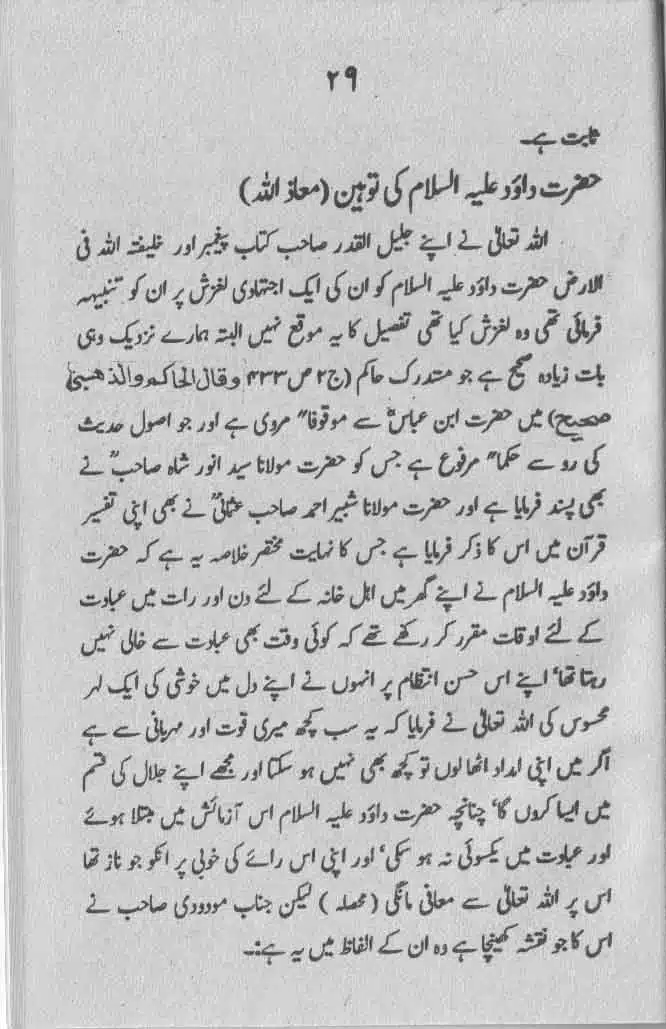 ۲۹
ثابت ہے۔
حضرت داؤد علیہ السلام کی توہین (معاذ اللہ)
اللہ تعالیٰ نے اپنے جلیل القدر صاحب کتاب پیغمبر اور خلیفتہ اللہ فی
الارض حضرت داؤد علیہ السلام کو ان کی ایک اجتہادی لغزش پر ان کو تنبیہہ
فرمائی تھی وہ لغزش کیا تھی تفصیل کا یہ موقع نہیں البتہ ہمارے نزدیک وہی
بات زیادہ صحیح ہے جو مستدرک حاکم (ج۲ ص۴۳۳ وقال الحاکم والذھبیؒ
صحیح) میں حضرت ابن عباسؓ سے موقوفا" مروی ہے اور جو اصول حدیث
کی رو سے حکما" مرفوع ہے جس کو حضرت مولانا سید انور شاہ صاحبؒ نے
بھی پسند فرمایا ہے اور حضرت مولانا شبیر احمد صاحب عثمانیؒ نے بھی اپنی تفسیر
قرآن میں اس کا ذکر فرمایا ہے جس کا نہایت مختصر خلاصہ یہ ہے کہ حضرت
داؤد علیہ السلام نے اپنے گھر میں اہل خانہ کے لئے دن اور رات میں عبادت
کے لئے اوقات مقرر کر رکھے تھے کہ کوئی وقت بھی عبادت سے خالی نہیں
رہتا تھا' اپنے اس حسن انتظام پر انہوں نے اپنے دل میں خوشی کی ایک لہر
محسوس کی اللہ تعالیٰ نے فرمایا کہ یہ سب کچھ میری قوت اور مہربانی سے ہے
اگر میں اپنی امداد اٹھا لوں تو کچھ بھی نہیں ہو سکتا اور مجھے اپنے جلال کی قسم
میں ایسا کروں گا' چنانچہ حضرت داؤد علیہ السلام اس آزمائش میں مبتلا ہوئے
اور عبادت میں یکسوئی نہ ہو سکی' اور اپنی اس رائے کی خوبی پر انکو جو ناز تھا
اس پر اللہ تعالیٰ سے معافی مانگی (محصلہ) لیکن جناب مودودی صاحب نے
اس کا جو نقشہ کھینچا ہے وہ ان کے الفاظ میں یہ ہے:۔